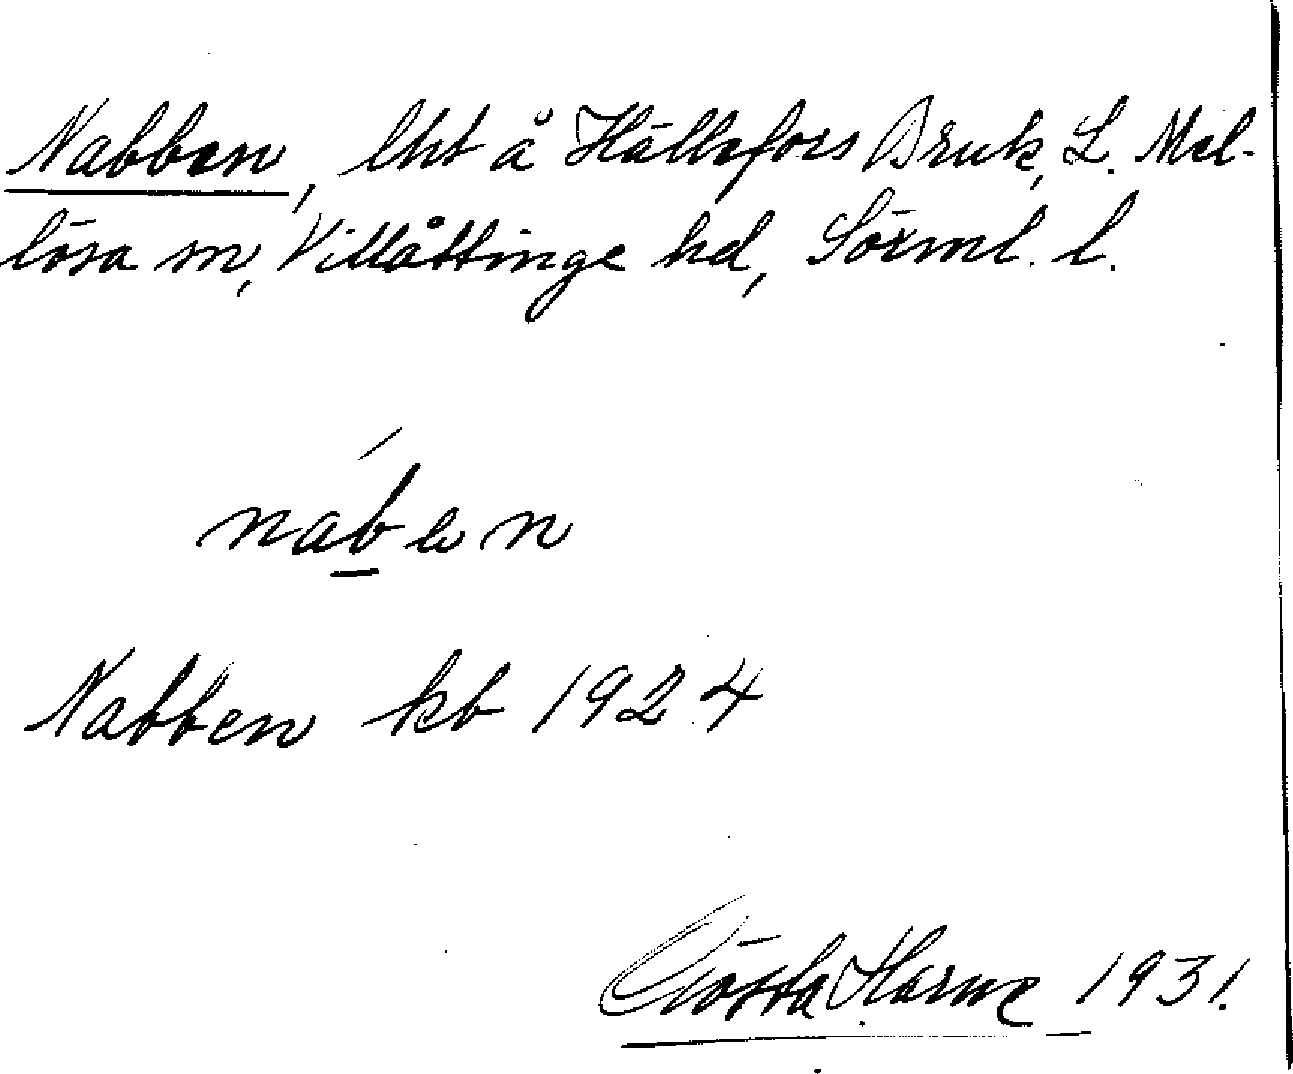 Nabben, lht å Hälleforss Bruk, L. Mel-
lösa sn, Villåttinge hd, Sörml. l.
naben
Nabben kb 1924
Gösta Harne 1931.